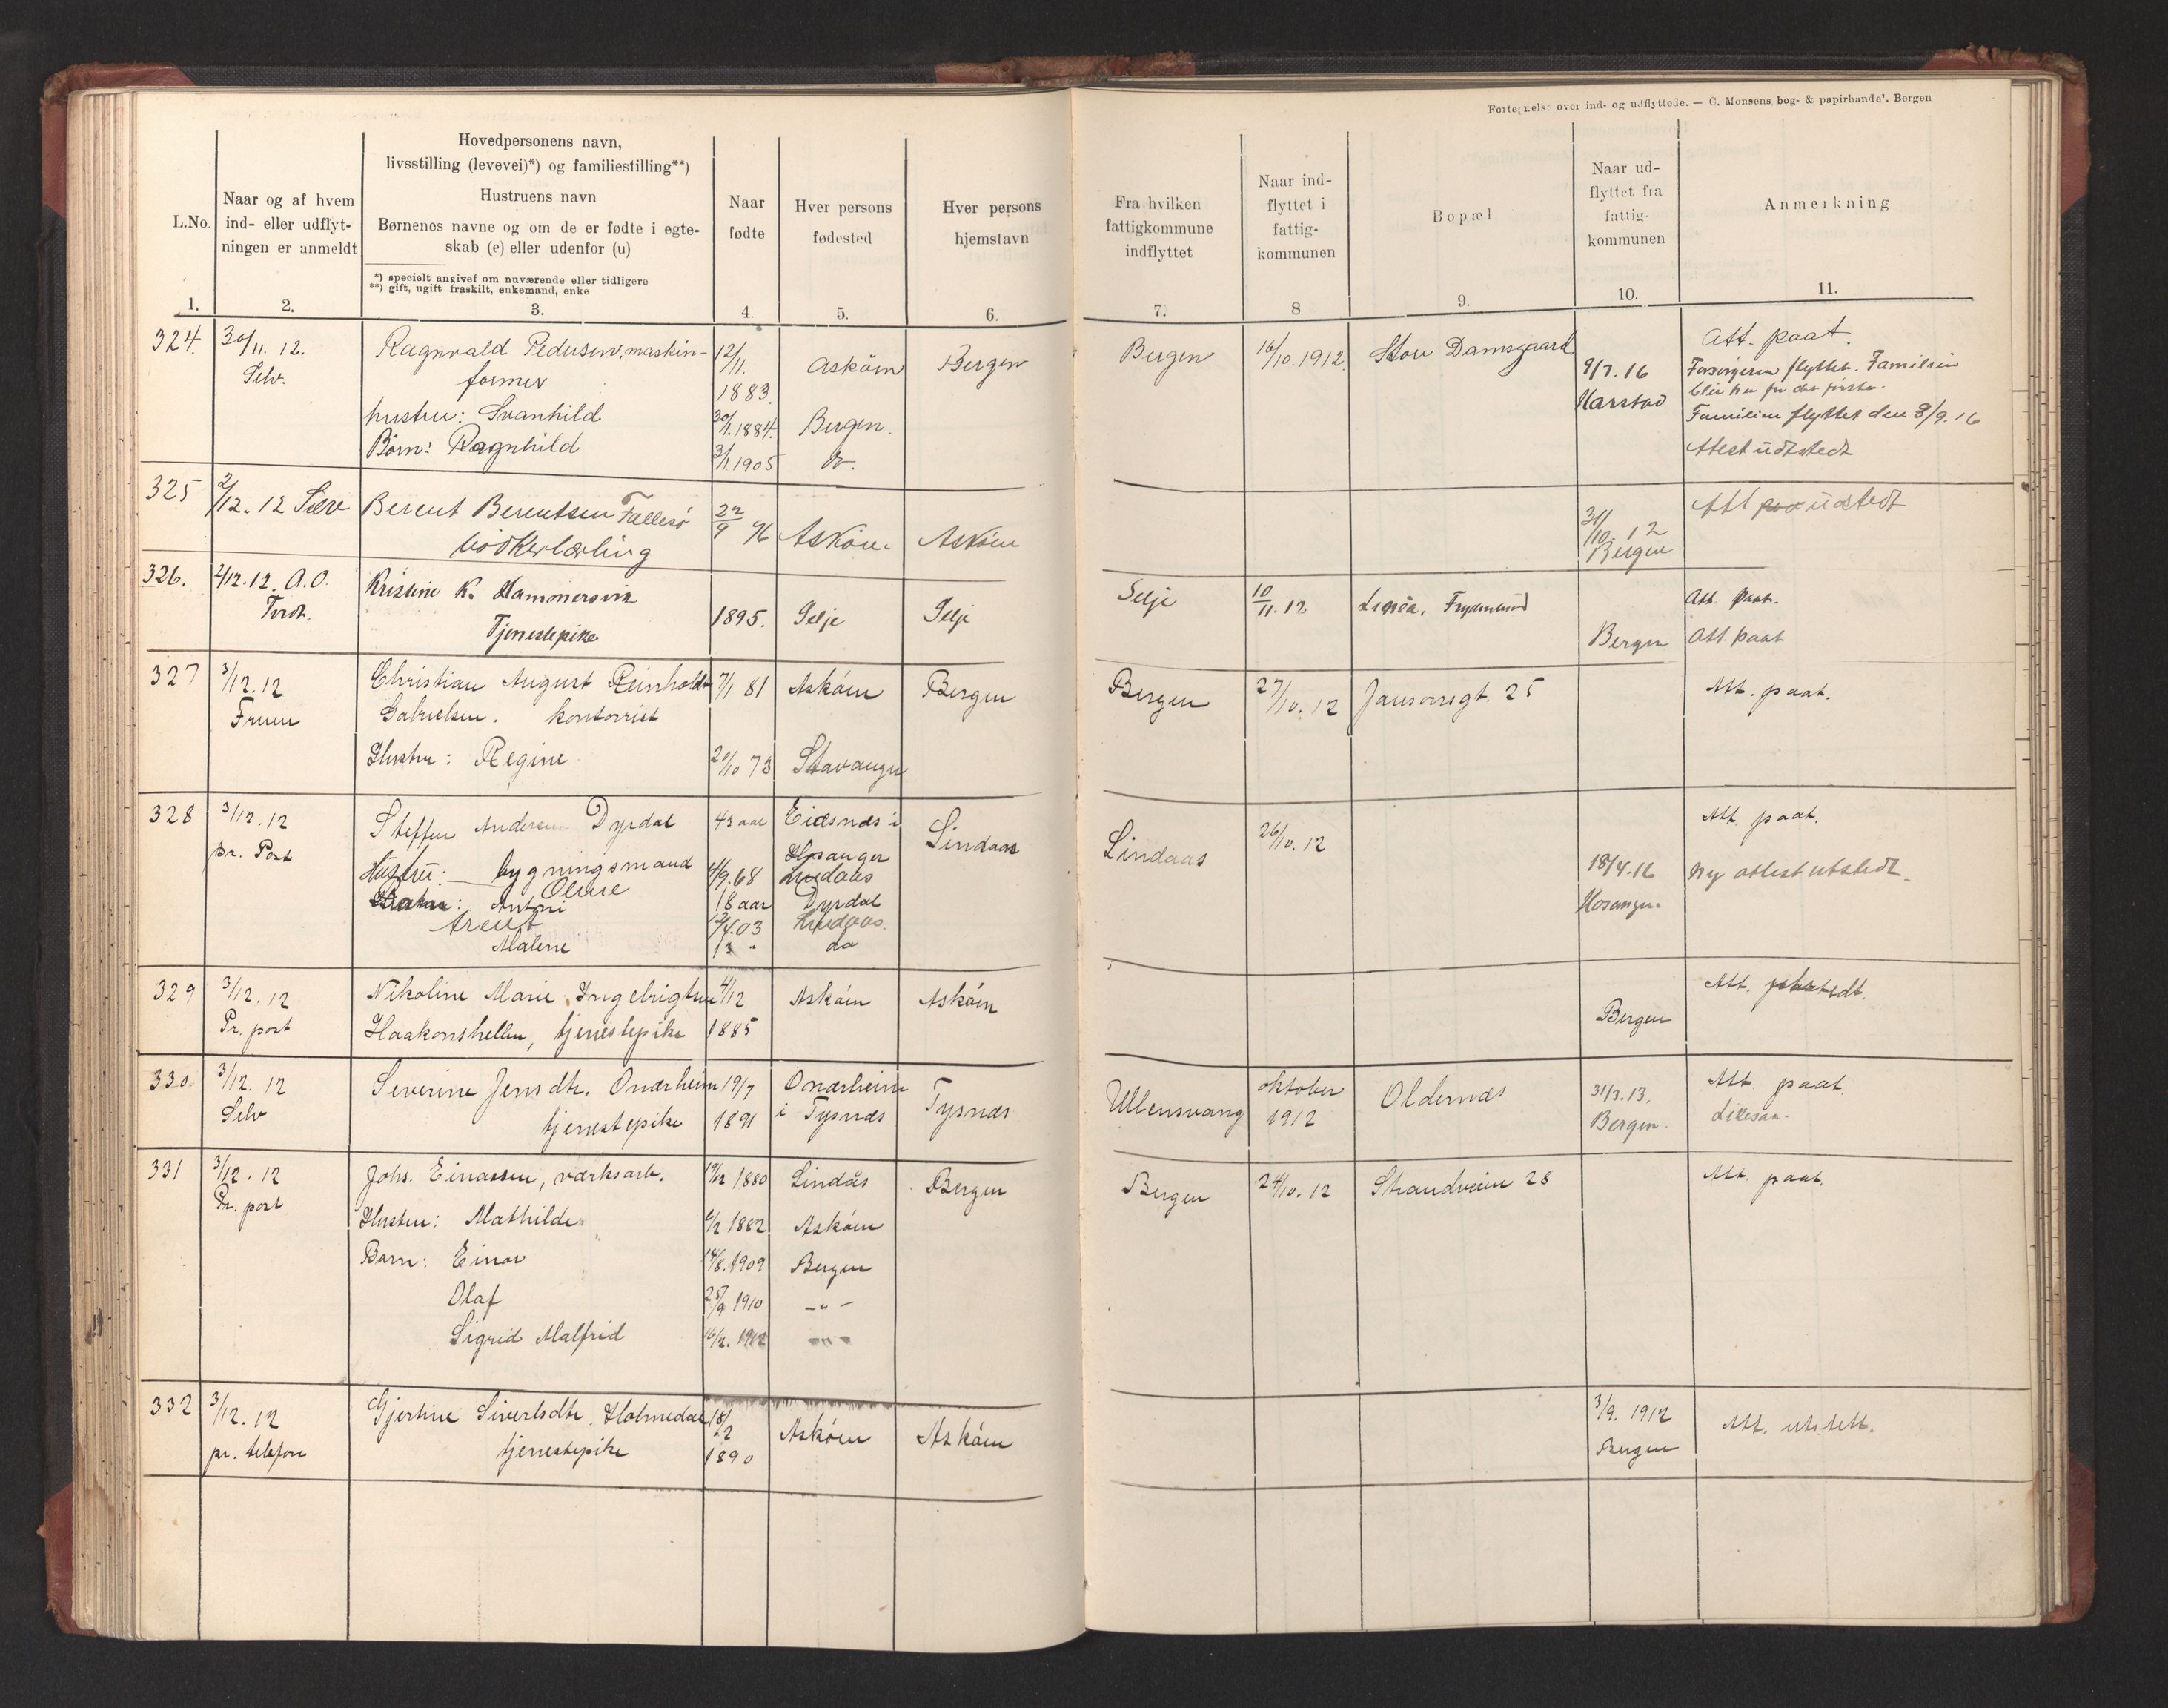 Fortegnelse over ind- og udflyttede. — C. Monsens bog- & papirhandel. Bergen
L.No.
Naar og af hvem
ind- eller udflyt-
ningen er anmeldt
Hovedpersonens navn,
livsstilling (levevei)*) og familiestilling**)
Hustruens navn
Børnenes navne og om de er fødte i egte-
skab (e) eller udenfor (u)
*) specielt angivet om nuværende eller tidligere
**) gift, ugift fraskilt, enkemand, enke
Naar
fødte
Hver persons
fødested
Hver persons
hjemstavn
Fra hvilken
fattigkommune
indflyttet
Naar ind-
flyttet i
fattig-
kommunen
Bopæl
Naar ud-
flyttet fra
fattig-
kommunen
Anmerkning
1. 2. 3. 4. 5. 6. 7. 8 9. 10. 11.
324. 30/11. 12. Ragnvald Pedersen, maskin- 12/11. Askøen Bergen Bergen 16/10.1912 Store Damsgaard Att. paat.
Selv. former 1883. 9/7.16 Forsørgeren flyttet. Familien
Harstad blir her for det første.
hustru: Svanhild 30/1.1884. Bergen. Familien flyttet den 3/9.16
Børn: Ragnhild 3/1 1905 do. Attest üdstedt
325 2/12. 12 Selv Berent Berentsen 22/9 96 Askøen Askøen 31/10. 12 Att üdstedt
bødkerlærling Bergen
326. 2/12.12. A.O. Kristine K. Hammersvik 1895. Selje Selje Selje 10/11.12 Att. paat.
Tvedt. Tjenestepike Bergen Att. paat
327 3/12.12 Christian August Reinholdt 7/1 81 Askøen Bergen Bergen 27/10. 12 Jansonsgt. 25 Att. paat.
Fruen Gabrielsen. kontorist
Hustru: Regine 73 Stavanger
328 3/12.12 Steffen Andersen Dyrdal 43 aar Eidsnæs i Lindaas Lindaas 26/10. 12 Att. paat.
pr. Post bygningsmand Hosanger
Hüstrü: Oline 4/9.68 Lindaas 18/4.16 Ny attest utstedt.
Antoni 18 aar Dyrdal Hosanger
03 Lindaas.
Malene 13 " do
329 3/12. 12 Nikoline Marie Ingebrigtsen 4/12 Askøen Askøen Att.
Pr. post Haakonshellen, tjenestepike 1885 Bergen
330 3/12. 12 Severine Jensdtr. Onarheim 19/7 Onarheim Tysnæs Ullensvang oktober Oldernæs 31/3.13. Att. paat.
Selv tjenestepike 1891 i Tysnæs 1912 Bergen.
331 3/12. 12 Johs. Einarsen, værksarb. 1880 Lindås Bergen Bergen 24/10. 12 Strandveien 28 Att. paat.
Pr. post
Hustru: Mathilde 1882 Askøen
Barn: Einar 14/8.1909 Bergen
Olaf 25/9 1910 – " –
Sigrid Malfrid 16/2. 1912 – " –
332 3/12.12 Gjertine Sivertsdtr. Holmedal 18/2 Askøen Askøen 3/9. 1912 Att. utstett.
pr. telefon tjenestepike 1890 Bergen